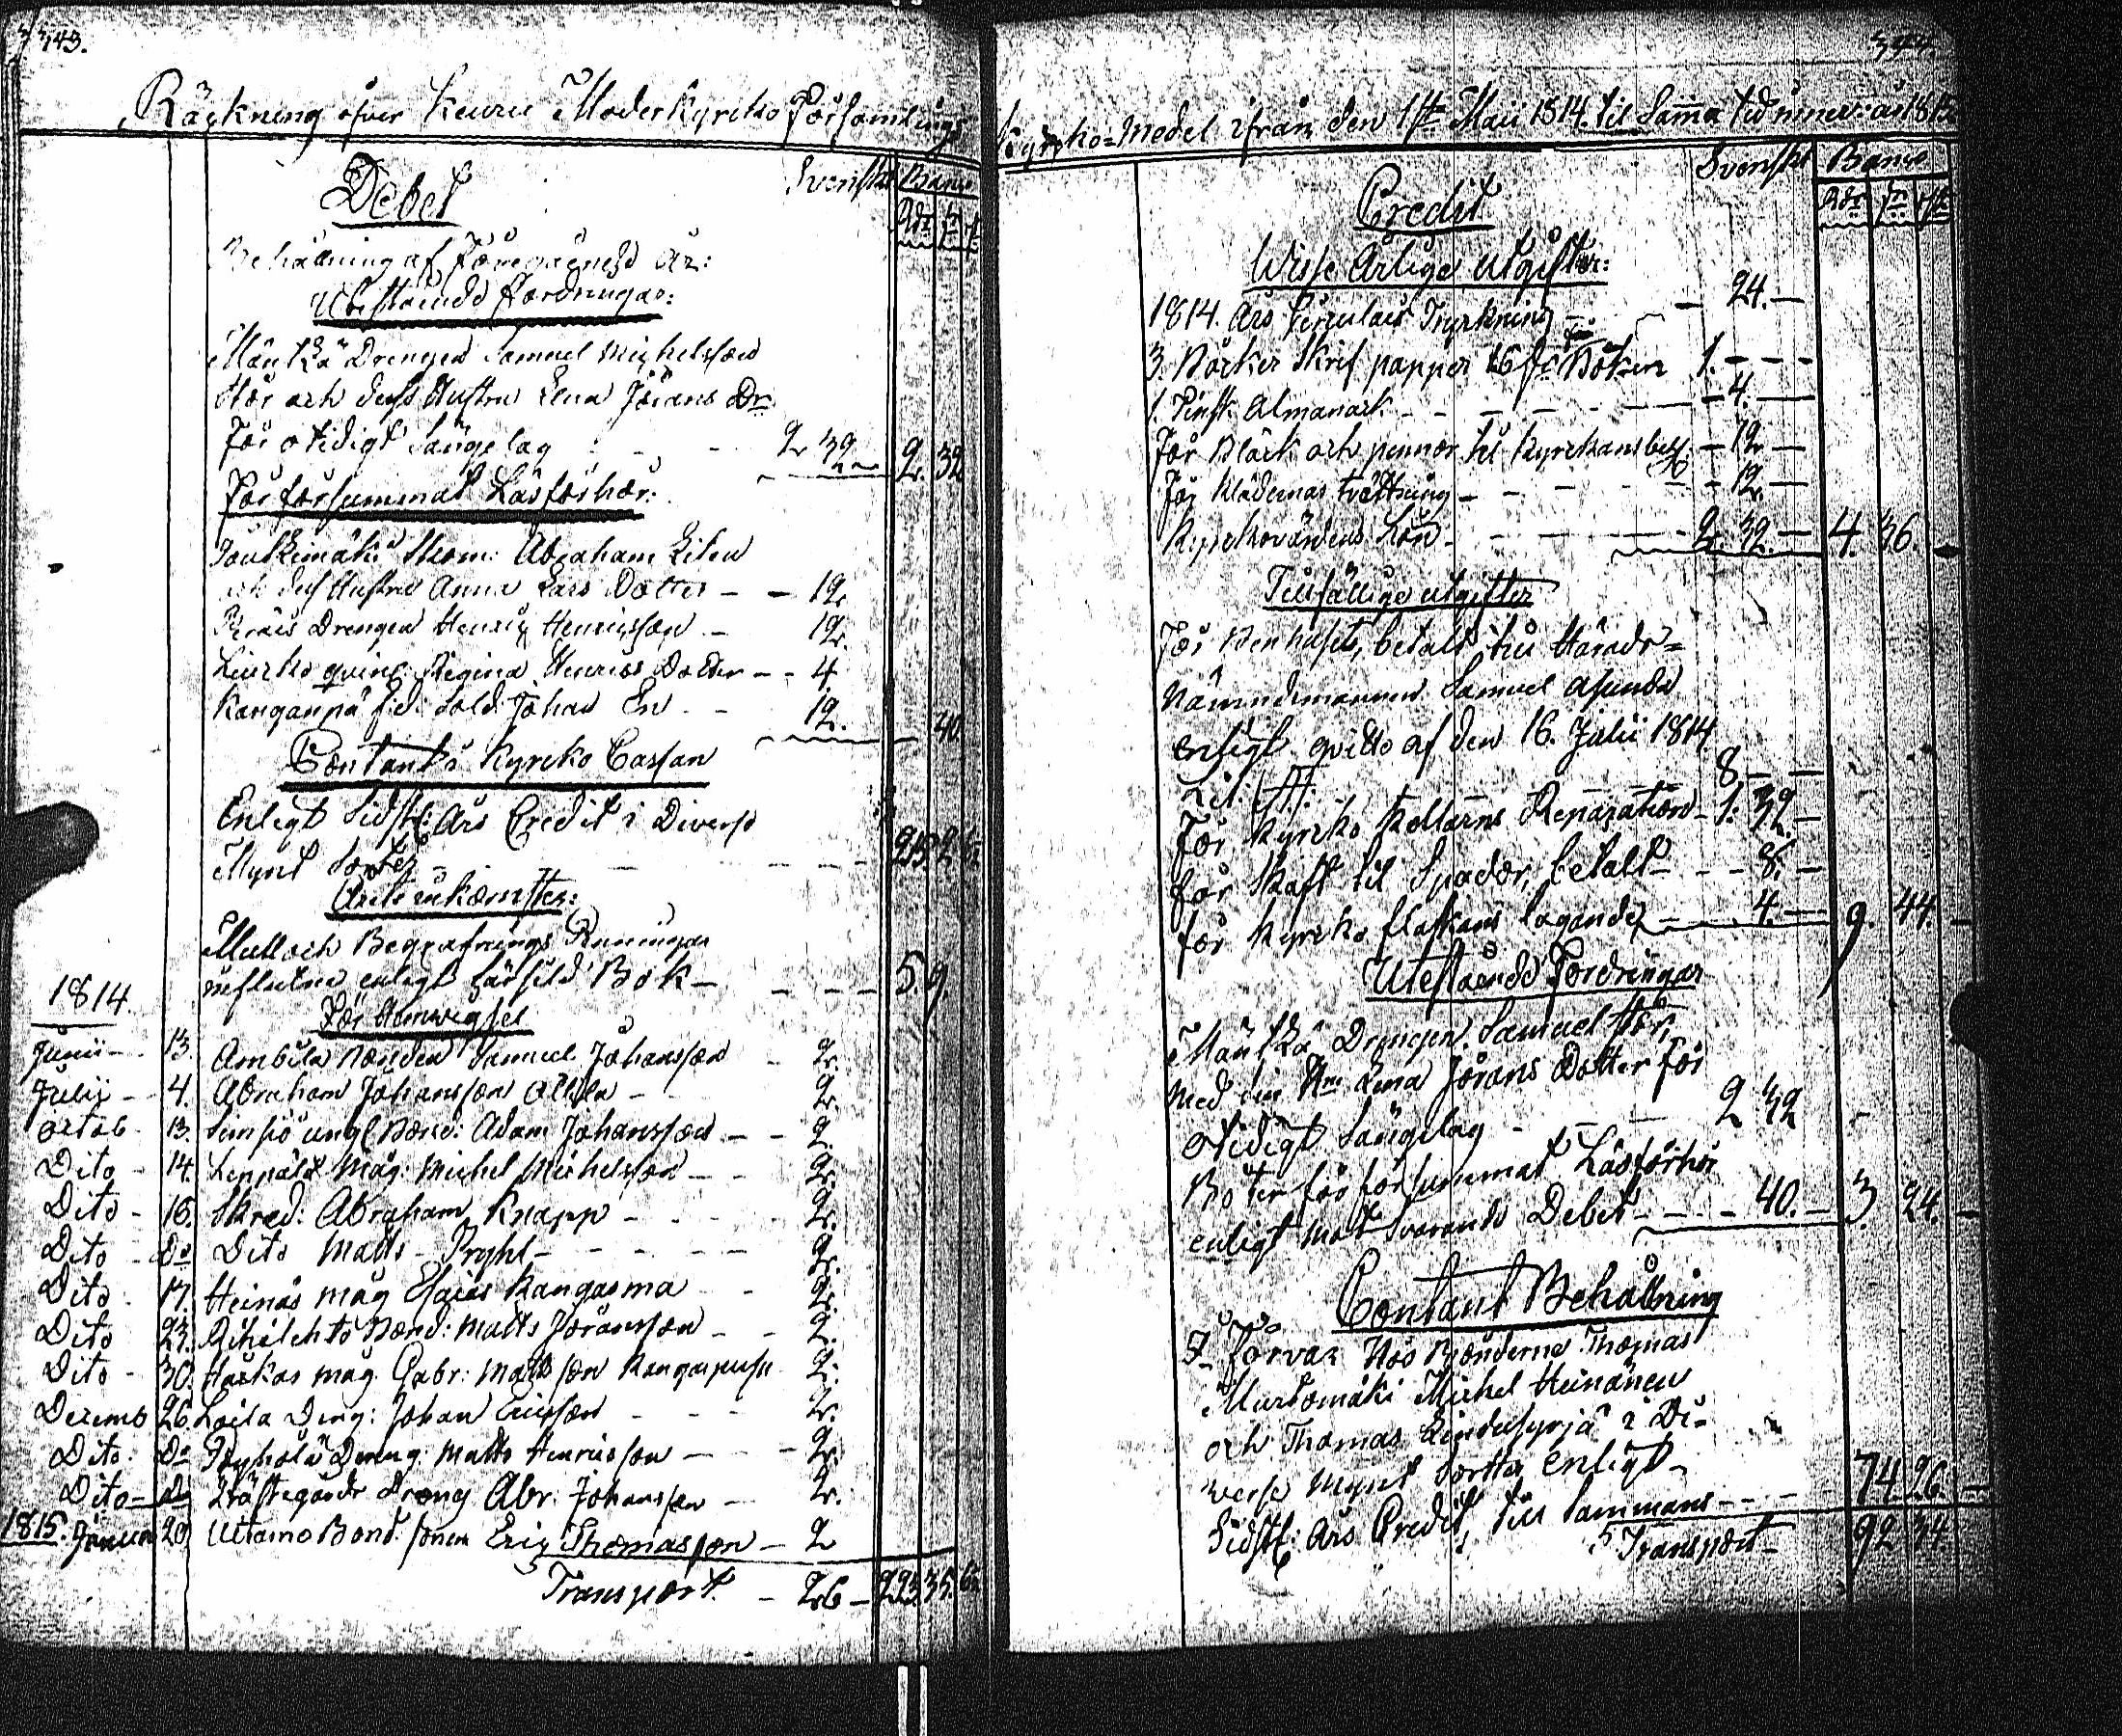 343.
Räkning öfver Keuru Moderkyrko Församlings
Debet
Svenskt Banco
Rdr s: r:
Behållning af Föregående År:
Utestående Fordringar:
Mänttä Drengen Samuel Michelsson
Hör och dess Hustru Lena Jörans Dr
För otidigt Sängelag - - 2 32 2. 32
För försummat Läsförhör:
Abraham
och dess Hustru Anna Lars Dotter - - 12
Drengen Henric Henricsson - 12.
qvinl: Regina Henrics Dotter - - 4
Kangaspä f.d. Sold: Johan En - - 12. 40
Contant i Kyrko Cassan
Enligt sidstl: Års Credit i Diverse
Mynt Sorter - - - - 215. 2 6
Årets inkomster:
Mull och Begrafnings Penningar
influtne enligt särskild Bok - - - - 5. 9.
För Hemvigsel
1814.
Junii - 13. Ambula Bonden Samuel Johansson - 2.
Julii - 4. Abraham Johansson - 2.
Octob - 13. Simsiö Bond: Adam Johansson - - 2.
Dito - 14. Leppälä Måg: Michel Michelsson - - 2.
Dito - 16. Skred: Abraham Knapp - - - 2.
Dito - Do Dito Matts Pryhl - - - - 2.
Dito - 17. Heinäs måg Esaias Kangasma - 2.
Dito 23. Riihilehto Bond: Matts Jöransson - - 2.
Dito - 30. Huskas måg Gabr: Mattsson 2.
Decemb 26. Loila Dreng: Johan Ericsson - - - 2.
Dito - Do Pöyhölä Dreng: Matts Henricsson - - 2.
Dito - Do Gästegårds dreng Abr. Johansson - 2.
1815. Januar 29. Utamo Bond. sonen Eric Thomasson - 2
Transport. - 26 - 223. 35. 6
344.
Kyrko-Medel ifrån den 1ste Maii 1814. til Samma tid innev: år 1815.
Credit
Svenskt Banco
Rdr s: r:
Wisse Årlige Utgifter:
1814. Års Circulairs Tryckning - - 24. -
3. Böcker Skrif papper 16 s: Boken 1. - - -
1. Finsk Almanack - - - - - - 4. -
För Bläck och pennor til Kyrckans beh: - 12 -
För Klädernas tvättning - - - - - 12. -
Kyrckovärdens Lön - - - - 2. 32. - 4. 36. -
Tillfällige utgifter
För Benhuset, betalt till Härads-
Nämndemannen Samuel Asunda
enligt qvitto af den 16. Julii 1814
Lit. A. 8 - -
För Kyrko Kellarns Reparation - 1. 32. -
för Skaft til Spador, betalt - - - 8. -
för Kyrko flaskans lagande - - 4. - 9. 44. -
Utestående Fordringar
Mänttä Drengen Samuel Hör,
med sin Hru Lena Jörans Dotter för
otidigt Sängelag - - - 2 32
Böter för försummat Läsförhör
enligt mot svarande Debet - - - 40. - 3. 24. -
Contant Behållning
I Förvar Hos Bönderne Thomas
Murtomäki Michel Heinänen
och Thomas Lindusyrjä i Di-
verse Mynt Sorter enligt -
Sidstl: Års Credit, till Sammans - - - 74. 26. -
Transport - 92 34.